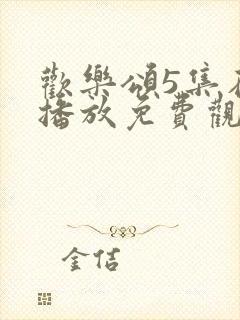 歡樂頌5集在
播放免費觀
金佶